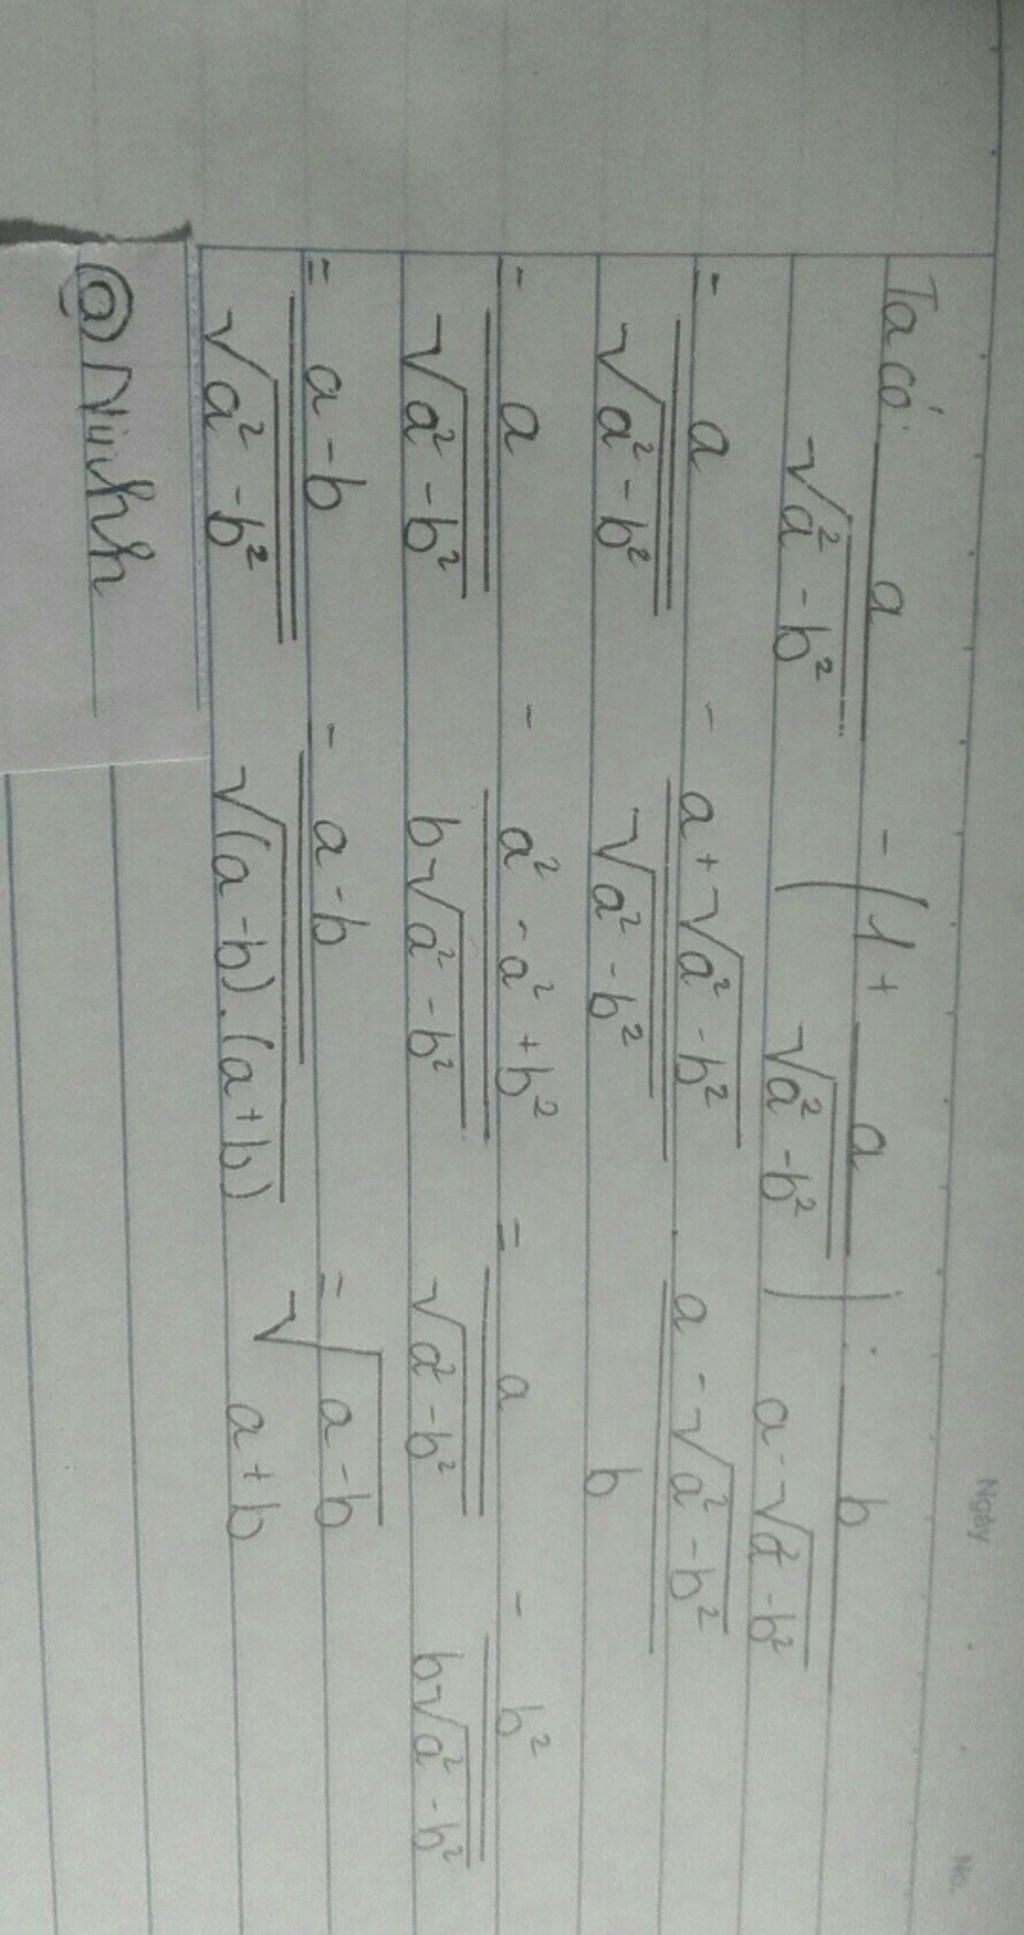 Ngày No.
Ta có: a/√(a² - b²) - (1 + a/√(a² - b²)) : b/(a - √(a² - b²))
= a/√(a² - b²) - (a + √(a² - b²))/√(a² - b²) . (a - √(a² - b²))/b
= a/√(a² - b²) - (a² - a² + b²)/(b√(a² - b²)) = a/√(a² - b²) - b²/(b√(a² - b²))
= (a - b)/√(a² - b²) = (a - b)/√((a - b).(a + b)) = √(a - b)/(a + b)
@Ninhh